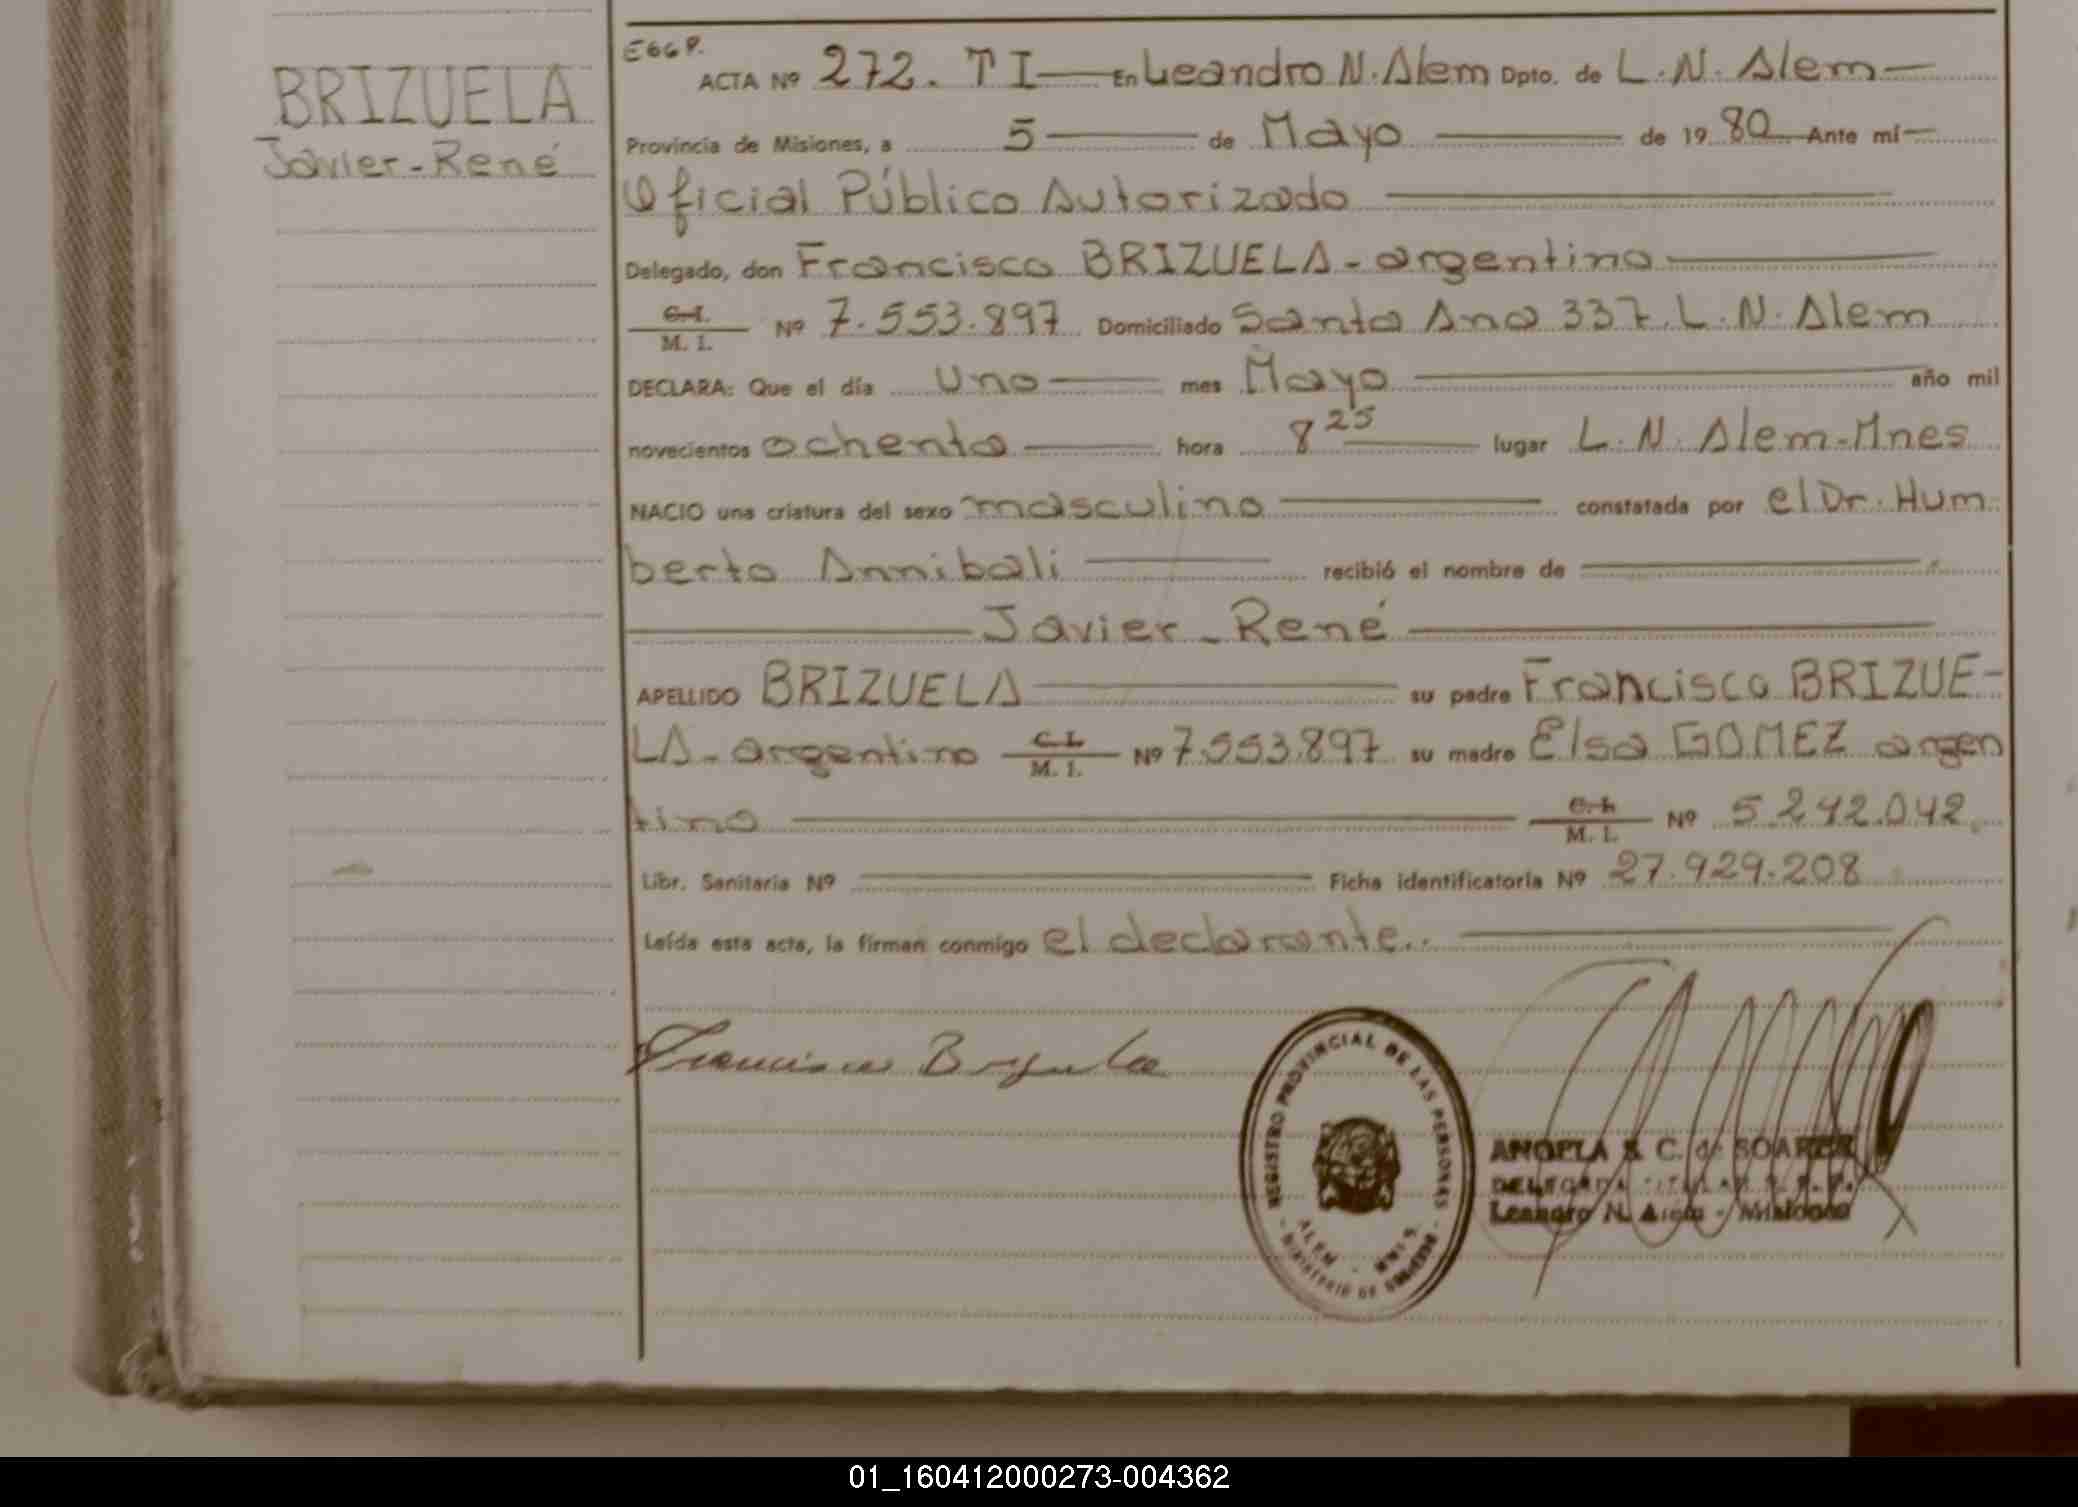 BRIZUELA
Javier-René
E66P.
ACTA Nº 272. T I — En Leandro N. Alem Dpto. de L. N. Alem —
Provincia de Misiones, a 5 — de Mayo — de 1980 Ante mí —
Oficial Público Autorizado —
Delegado, don Francisco BRIZUELA - argentino —
C. I. / M. I. Nº 7.553.897 Domiciliado Santa Ana 337. L. N. Alem
DECLARA: Que el día uno — mes Mayo — año mil
novecientos ochenta — hora 8 25 — lugar L. N. Alem-Mnes
NACIO una criatura del sexo masculino — constatada por el Dr. Hum
berto Annibali — recibió el nombre de —
— Javier - René —
APELLIDO BRIZUELA — su padre Francisco BRIZUE-
LA - argentino C. I. / M. I. Nº 7.553.897 su madre Elsa GOMEZ argen
tina — C. I. / M. I. Nº 5.242.042.
Libr. Sanitaria Nº — Ficha identificatoria Nº 27.929.208
Leída esta acta, la firman conmigo el declarante.. —
Francisco Brizuela
REGISTRO PROVINCIAL DE LAS PERSONAS
ALEM - MNES
MINISTERIO DE GOBIERNO
ANGELA S. C. de SOAREZ
DELEGADA TITULAR R. P. P.
Leandro N. Alem - Misiones
01_160412000273-004362